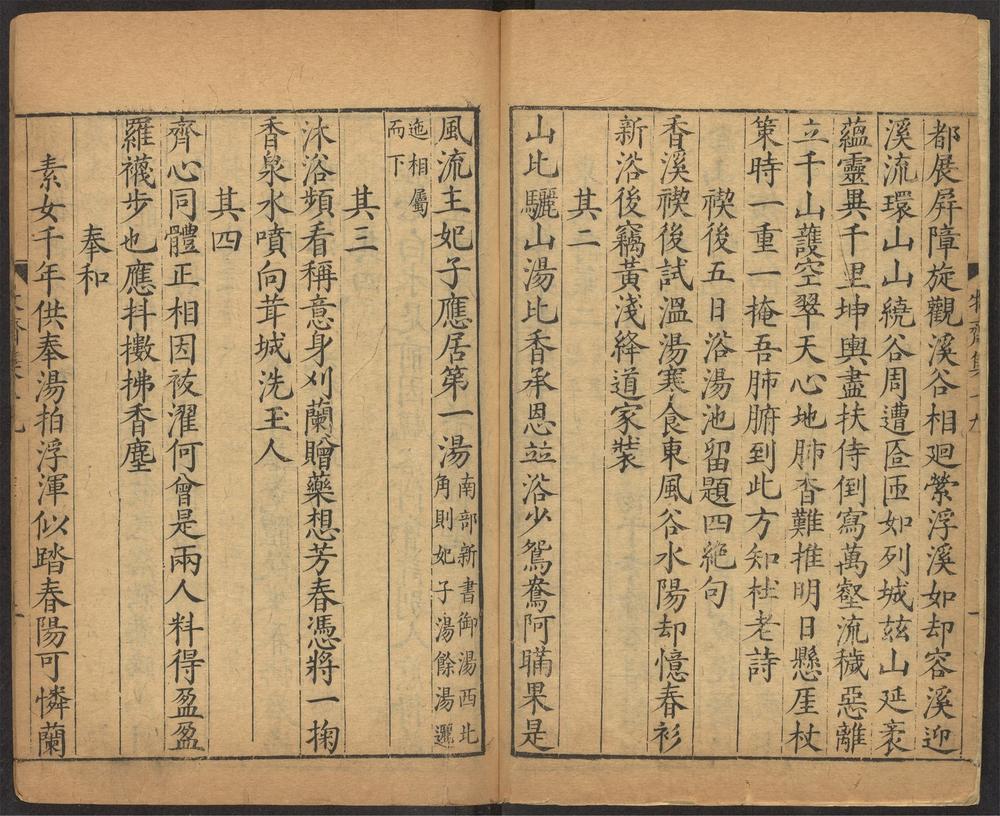 都展屛障旋觀溪谷相廻縈浮溪如却容溪迎
溪流環山山繞谷周遭匼匝如列城茲山延袤
蘊靈異千里坤輿盡扶侍倒寫萬壑流穢惡離
立千山䕶空翠天心地肺杳難推明日懸厓杖
策時一重一掩吾肺腑到此方知杜老詩
禊後五日浴湯池留題四絶句
香溪禊後試溫湯寒食東風谷水陽却憶春衫
新浴後竊黃淺絳道家裝
其二
山比驪山湯比香承恩並浴少鴛鴦阿瞞果是
風流主妃子應居第一湯南部新書御湯西北角則妃子湯餘湯邐
迤相屬而下
其三
沐浴頻看稱意身刈蘭贈藥想芳春憑將一掬
香泉水噴向茸城洗玉人
其四
齊心同體正相因祓濯何曾是兩人料得盈盈
羅襪步也應抖擻拂香塵
奉和
素女千年供奉湯拍浮渾似踏春陽可憐蘭